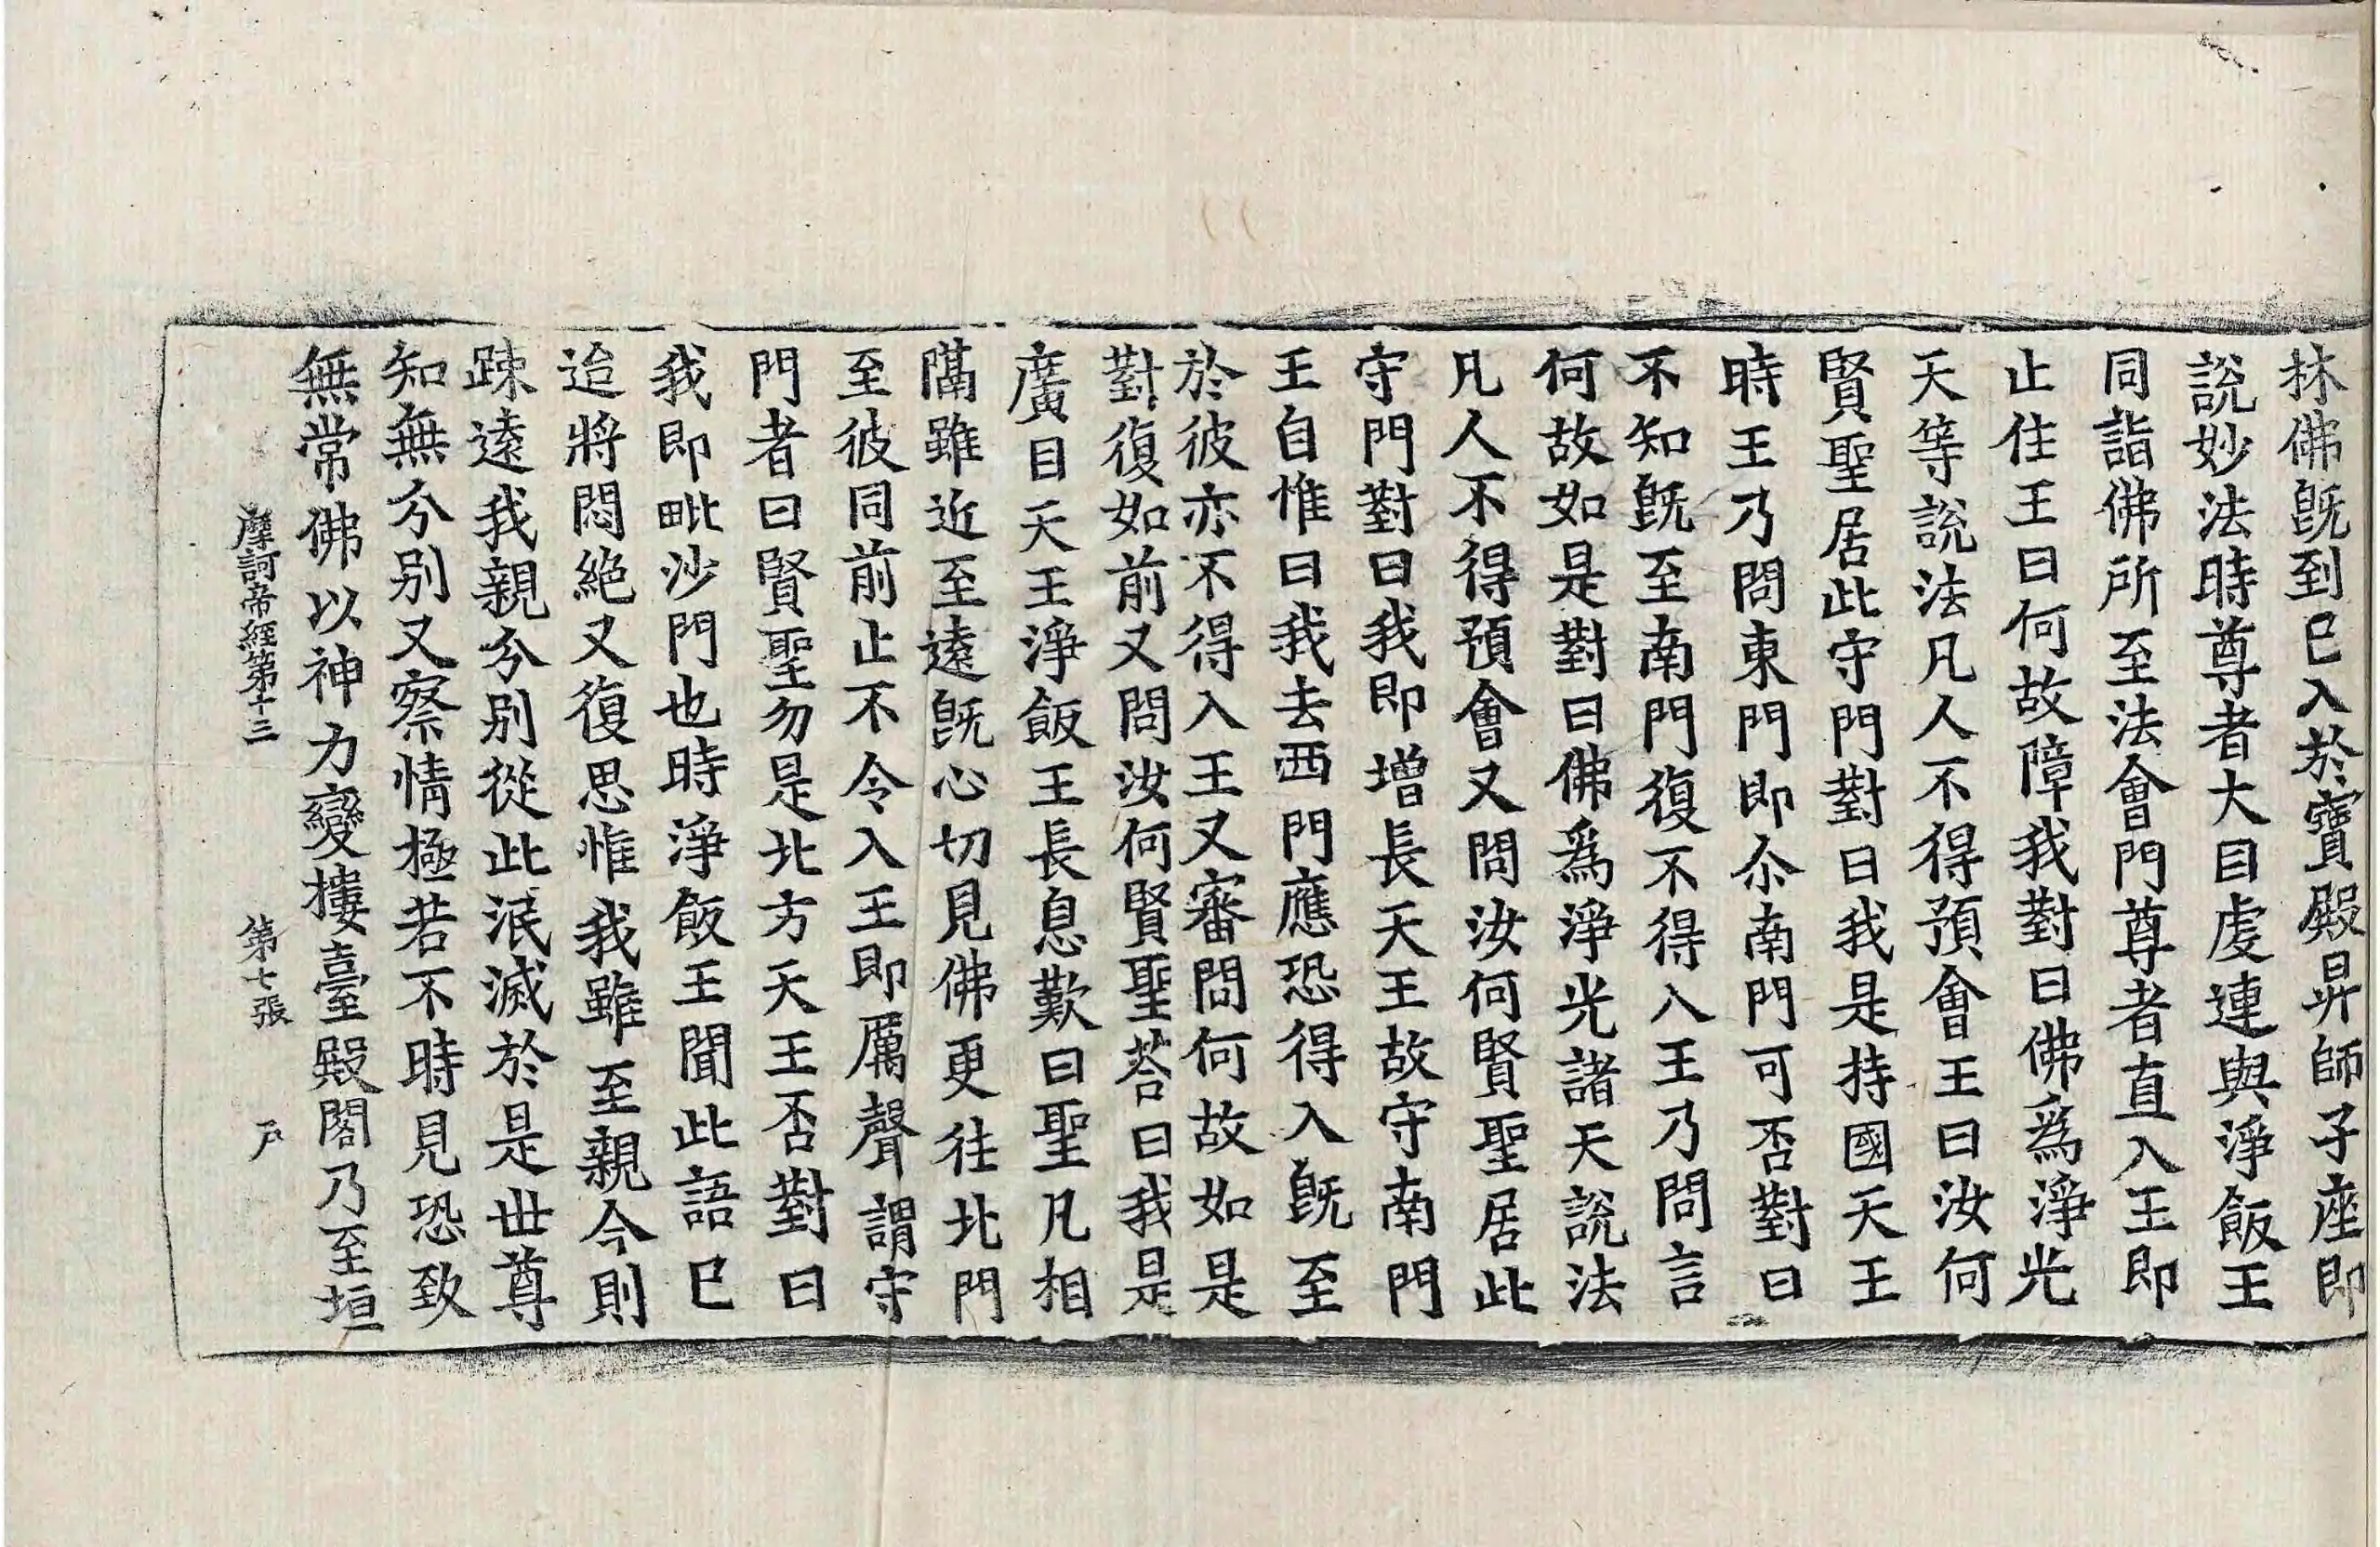 林佛旣到已入於寶殿昇師子座即
說妙法時尊者大目䖍連與淨飯王
同詣佛所至法會門尊者直入王即
止住王曰何故障我對曰佛爲淨光
天等說法凡人不得預會王曰汝何
賢聖居此守門對曰我是持國天王
時王乃問東門即尒南門可否對曰
不知旣至南門復不得入王乃問言
何故如是對曰佛爲淨光諸天說法
凡人不得預會又問汝何賢聖居此
守門對曰我即增長天王故守南門
王自惟曰我去西門應恐得入旣至
於彼亦不得入王又審問何故如是
對復如前又問汝何賢聖荅曰我是
廣目天王淨飯王長息歎曰聖凡相
隔雖近至遠旣心切見佛更往北門
至彼同前止不令入王即厲聲謂守
門者曰賢聖勿是北方天王否對曰
我即毗沙門也時淨飯王聞此語已
迨將悶絕又復思惟我雖至親今則
踈遠我親分別從此泯滅於是世尊
知無分別又察情極若不時見恐致
無常佛以神力變樓臺殿閣乃至垣
摩訶帝經第十三　第七張　戶